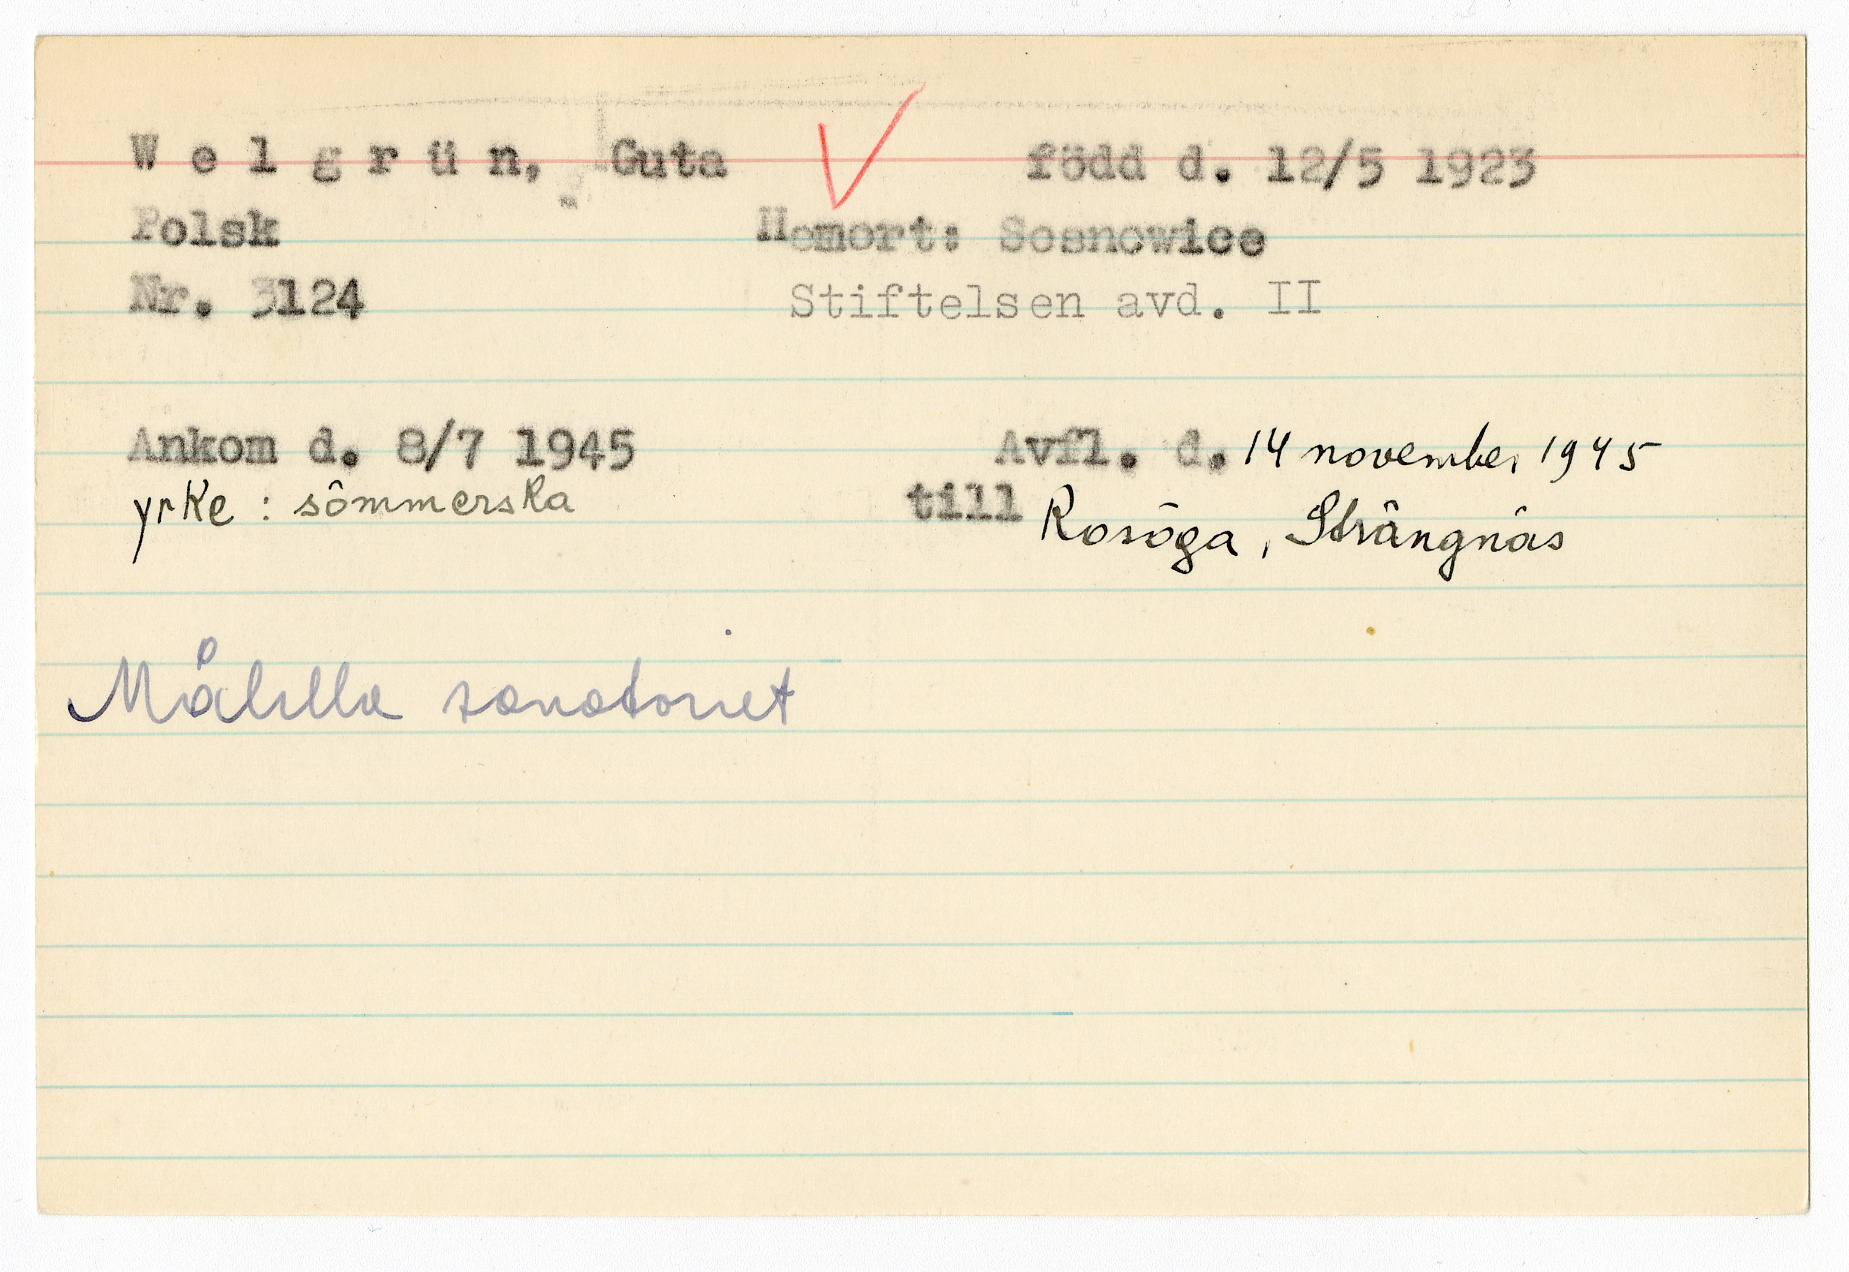 W e l g r ü n, Guta född d. 12/5 1923
Polsk Hemort: Sosnowice
Nr. 3124 Stiftelsen avd. II
Ankom d. 8/7 1945 Avfl. d. 14 november 1945
yrke : sömmerska till Rosöga, Strängnäs
Målilla sanatoriet